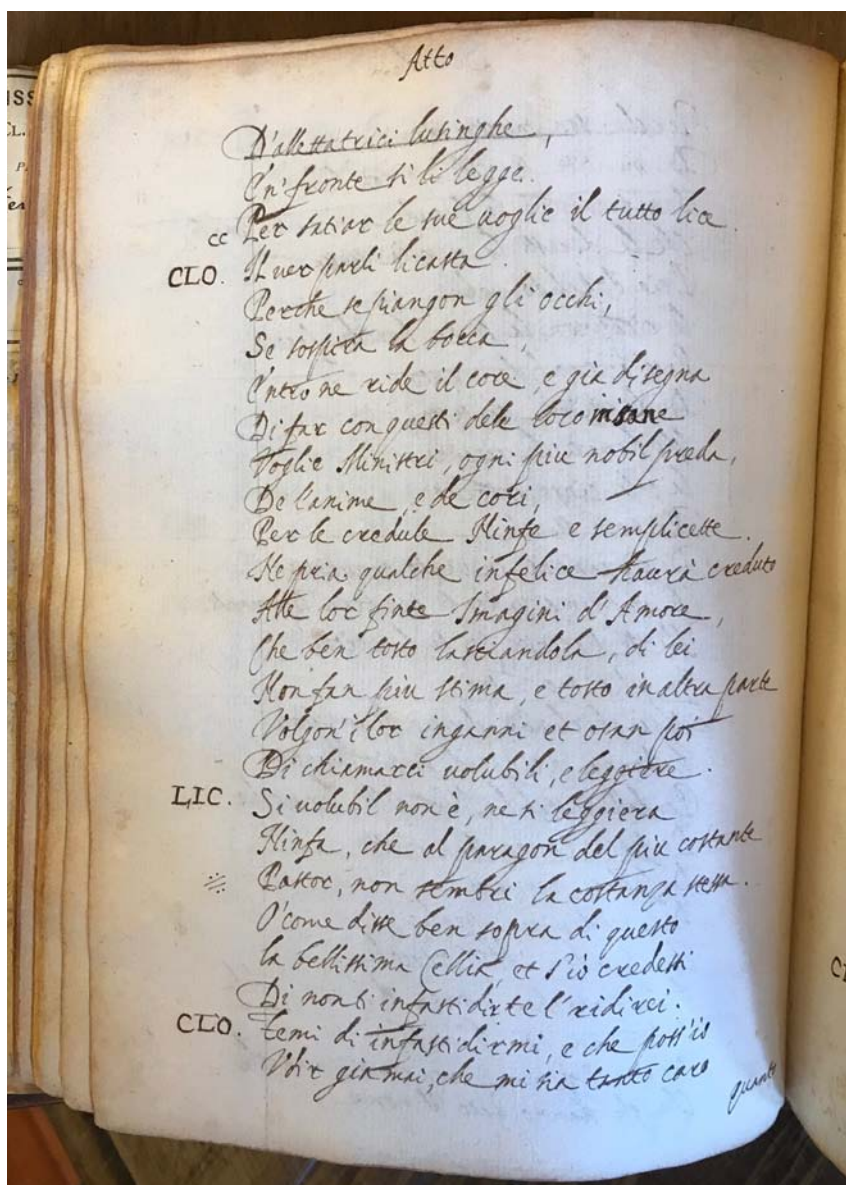 Atto
D'allettatrici lusinghe,
E'n' fronte si li legge.
cc Per satiar le sue uoglie il tutto lice.
CLO. Il ver parli licasta.
Perche se piangon gli occhi,
Se sospira la bocca,
Entro ne ride il core, e gia disegna
Di far con questi dele loco insane
Voglie Ministri, ogni piu nobil preda,
De l'anime, e de cori,
Per le credule Ninfe e semplicette.
Ne pria qualche infelice haurà creduto
Alle lor finte Imagini d'Amore,
Che ben tosto lasciandola, di lei
Non fan piu stima, e tosto in altra parte
Volgon' i lor inganni et osan poi
Di chiamarci uolubili, e leggiere.
LIC. Si uolubil non è, ne si leggiera
Ninfa, che al paragon del piu costante
Pastor, non sembri la costanza stessa.
O' come disse ben sopra di questo
la bellissima Cellia, et s'iò credessi
Di non ti infastidirte l'ridirei.
CLO. Temi di infastidirmi, e che poss'io
Vdir giamai, che mi sia tanto caro
quanto
ISS
CL.
P.